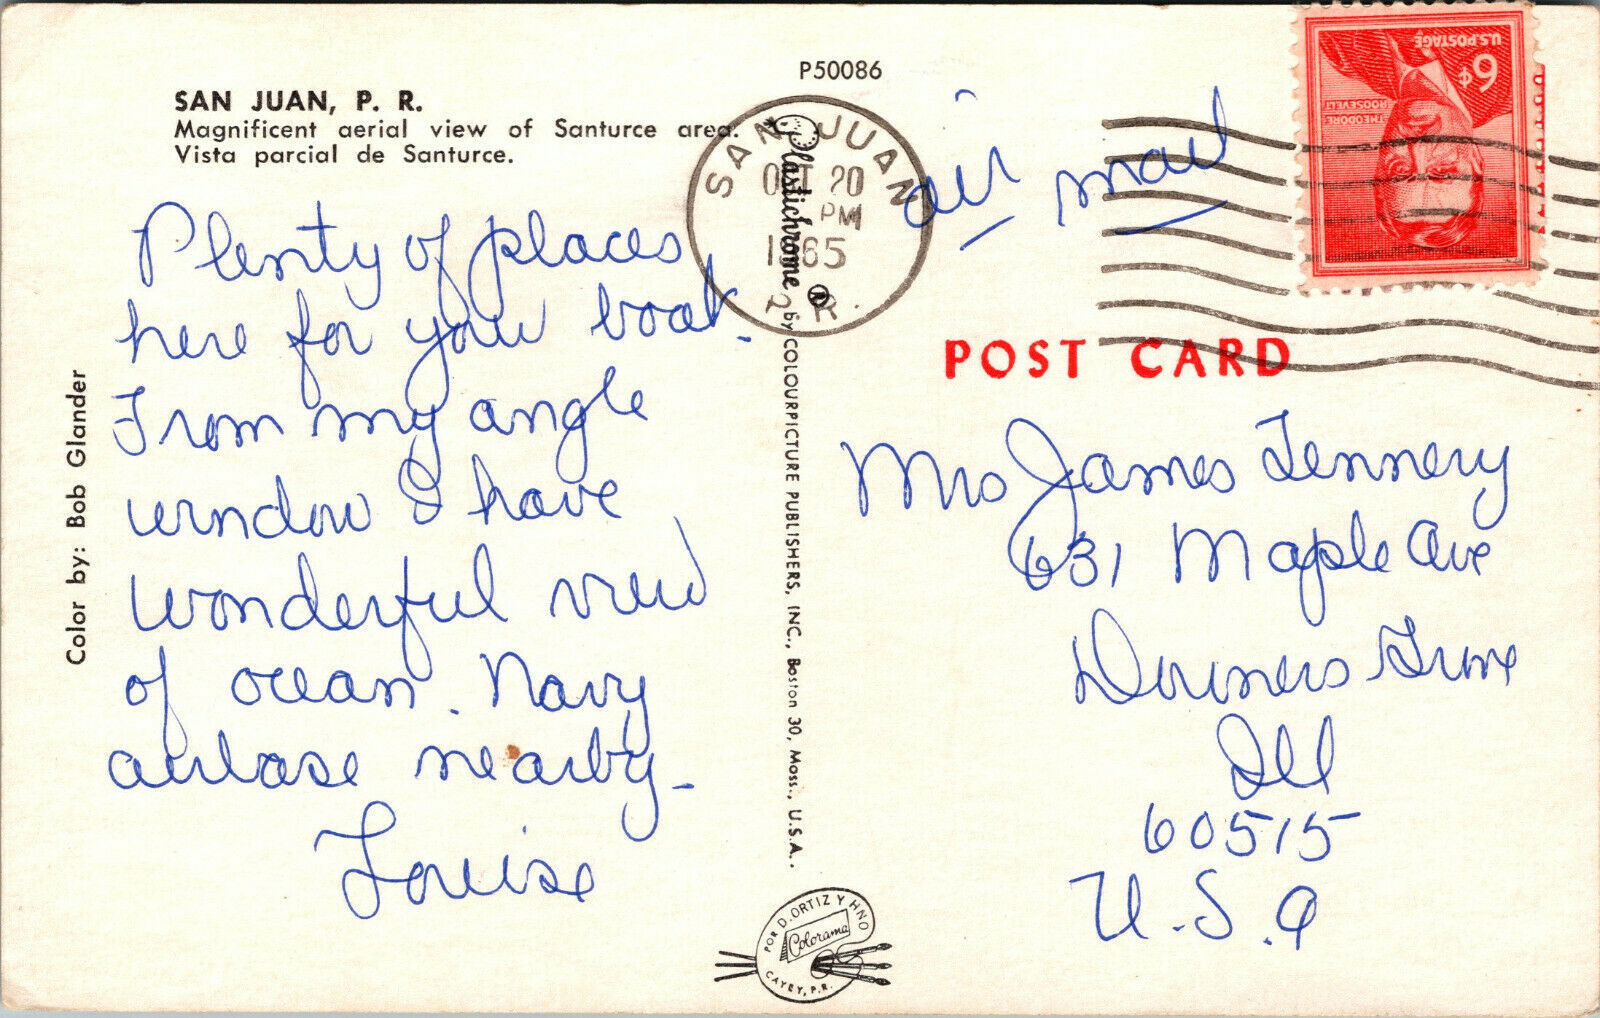 P50086
SAN JUAN, P. R.
Magnificent aerial view of Santurce area.
Vista parcial de Santurce.
Plenty of places
here for your boat.
From my angle
window I have
wonderful view
of ocean. Navy
airbase nearby-
Louise
Color by: Bob Glander
Plastichrome ® by COLOURPICTURE PUBLISHERS, INC., Boston 30, Mass., U.S.A.
SAN JUAN
OCT 20
PM
1965
P.R.
air mail
U.S. POSTAGE
6¢
THEODORE ROOSEVELT
POST CARD
Mrs James Tennery
631 Maple Ave
Downers Grove
Ill
60515
U.S.A
POR D. ORTIZ Y HNO
Colorama
CAYEY, P.R.